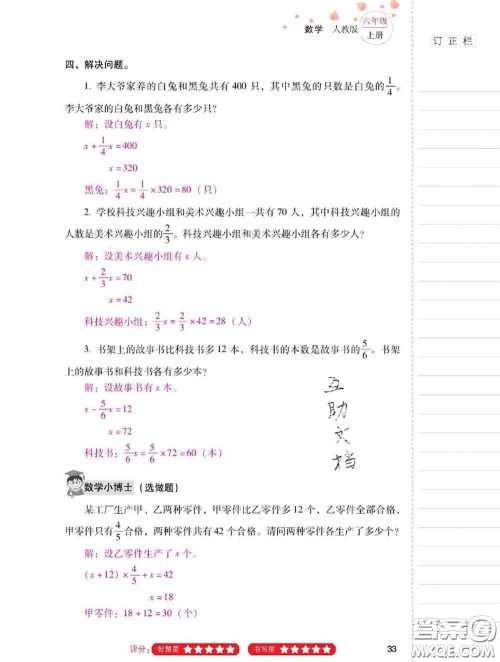 数学 人教版 六年级
上册
订正栏
四、解决问题。
1. 李大爷家养的白兔和黑兔共有 400 只，其中黑兔的只数是白兔的1/4。
李大爷家的白兔和黑兔各有多少只？
解：设白兔有 x 只。
x+1/4x=400
x=320
黑兔：1/4x=1/4×320=80（只）
2. 学校科技兴趣小组和美术兴趣小组一共有 70 人，其中科技兴趣小组的
人数是美术兴趣小组的2/3。科技兴趣小组和美术兴趣小组各有多少人？
解：设美术兴趣小组有 x 人。
x+2/3x=70
x=42
科技兴趣小组：2/3x=2/3×42=28（人）
3. 书架上的故事书比科技书多 12 本，科技书的本数是故事书的5/6。书架
上的故事书和科技书各有多少本？
解：设故事书有 x 本。
x-5/6x=12
x=72
科技书：5/6x=5/6×72=60（本）
互助文档
数学小博士（选做题）
某工厂生产甲、乙两种零件，甲零件比乙零件多 12 个，乙零件全部合格，
甲零件只有4/5合格，两种零件共有 42 个合格。请问两种零件各生产了多少个？
解：设乙零件生产了 x 个。
(x+12)×4/5+x=42
x=18
甲零件：18+12=30（个）
评分： 智慧星 ★★★★★ 书写星 ★★★★★
33
答案圈
MXQE.COM